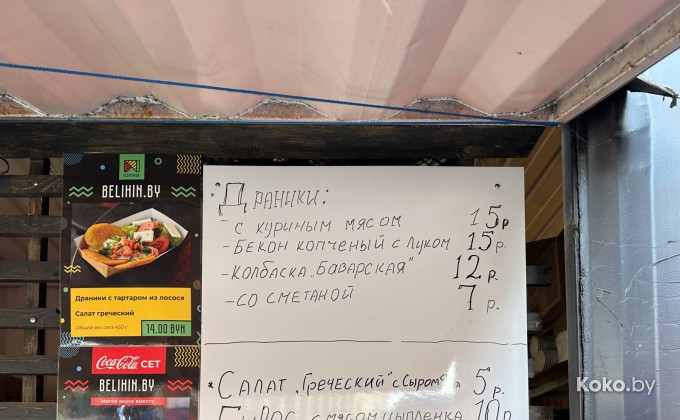 BELIHIN.BY
Драники с тартаром из лосося
Салат греческий
Общий вес сета 450 г
14.00 BYN
Coca-Cola СЕТ
BELIHIN.BY
Магия вкуса вместе
*Драники:
- с куриным мясом 15р.
- Бекон копченый с луком 15р.
- Колбаска „Баварская" 12р.
- со сметаной 7р.
* Салат „Греческий" с 5р.
с мясом цыпленка 10р
Koko.by